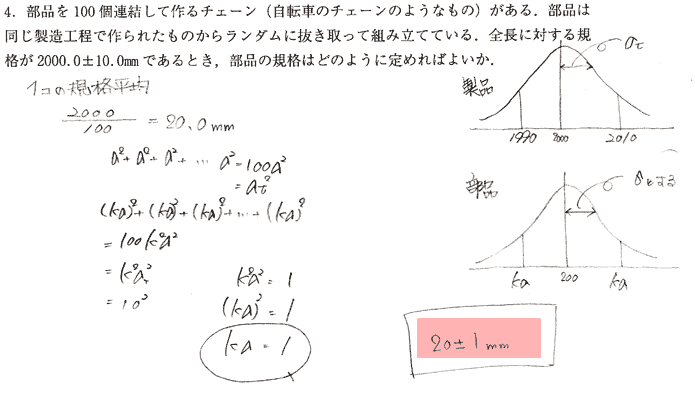 4. 部品を100個連結して作るチェーン（自転車のチェーンのようなもの）がある．部品は
同じ製造工程で作られたものからランダムに抜き取って組み立てている．全長に対する規
格が2000.0±10.0mmであるとき，部品の規格はどのように定めればよいか．
1コの規格平均
2000/100 = 20.0mm
a²+a²+a²+… a²=100a²
(ka)²+(ka)²+(ka)²+…+(ka)²
=100k²a²
= 10²
k²a² = 1
(ka)² = 1
ka = 1
製品
1990 2000 2010
部品
σとする
ka 200 ka
20±1mm